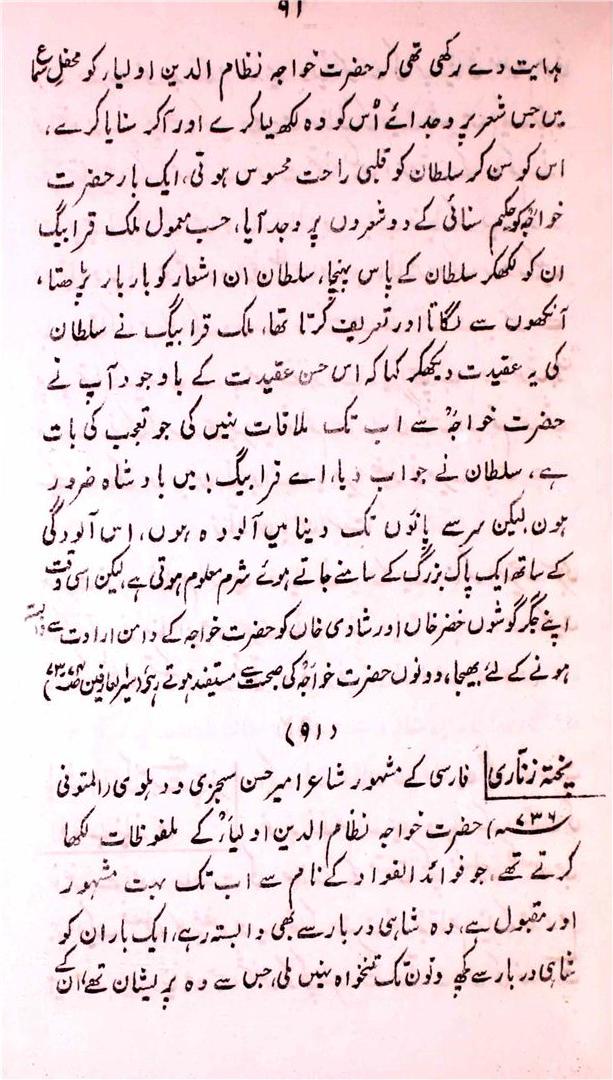 ۹۱
ہدایت دے رکھی تھی کہ حضرت خواجہ نظام الدین اولیاءکو محفلِ سماع
میں جس شعر پر وجد آئے اُس کو وہ لکھ لیا کرے اور آکر سنایا کرے،
اس کو سن کر سلطان کو قلبی راحت محسوس ہوتی، ایک بار حضرت
خواجہؒ کو حکیم سنائی کے دو شعروں پر وجد آیا، حسب معمول ملک قرابیگ
ان کو لکھکر سلطان کے پاس پہنچا، سلطان ان اشعار کو بار بار پڑھتا،
آنکھوں سے لگاتا اور تعریف کرتا تھا، ملک قرابیگ نے سلطان
کی یہ عقیدت دیکھکر کہا کہ اس حسن عقیدت کے باوجود آپ نے
حضرت خواجہؒ سے اب تک ملاقات نہیں کی جو تعجب کی بات
ہے، سلطان نے جواب دیا، اے قرابیگ! میں بادشاہ ضرور
ہون لیکن سر سے پائوں تک دینا میں آلودہ ہوں، اس آلودگی
کے ساتھ ایک پاک بزرگ کے سامنے جاتے ہوئے شرم معلوم ہوتی ہے لیکن اسی وقت
اپنے جگر گوشوں خضر خاں اور شادی خاں کو حضرت خواجہ کے دامن ارادت سے وابستہ
ہونے کے لئے بھیجا، دونوں حضرت خواجہؒ کی صحبت سے مستفید ہوتے رہے، (سیر العارفین صفحہ ۷۳-۷۴)
(۹۱)
پختہ زنّاری فارسی کے مشہور شاعر امیر حسن سجزی دہلوی (المتوفی
۷۳۶ھ) حضرت خواجہ نظام الدین اولیاءؒ کے ملفوظات لکھا
کرتے تھے، جو فوائد الفواد کے نام سے اب تک بہت مشہور
اور مقبول ہے، وہ شاہی دربار سے بھی وابستہ رہے، ایک بار ان کو
شاہی دربار سے کچھ دنوں تک تنخواہ نہیں ملی، جس سے وہ پریشان تھے، ان کے